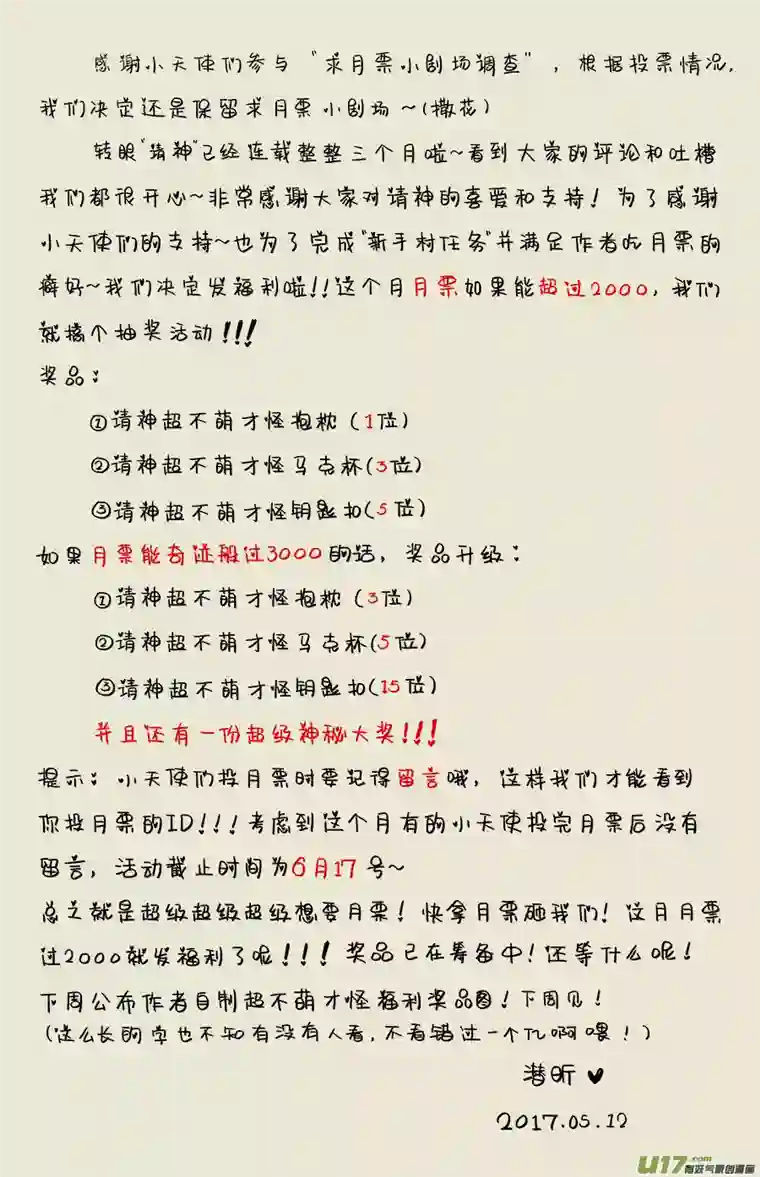 感谢小天使们参与“求月票小剧场调查”，根据投票情况，
我们决定还是保留求月票小剧场~(撒花)
转眼“请神”已经连载整整三个月啦~看到大家的评论和吐槽
我们都很开心~非常感谢大家对请神的喜爱和支持！为了感谢
小天使们的支持~也为了完成“新手村任务”并满足作者吃月票的
癖好~我们决定发福利啦!!这个月月票如果能超过2000，我们
就搞个抽奖活动!!!
奖品：
①请神超不萌才怪抱枕（1位）
②请神超不萌才怪马克杯(3位)
③请神超不萌才怪钥匙扣(5位)
如果月票能奇迹般过3000的话，奖品升级：
①请神超不萌才怪抱枕（3位）
②请神超不萌才怪马克杯(5位)
③请神超不萌才怪钥匙扣(15位)
并且还有一份超级神秘大奖!!!
提示：小天使们投月票时要记得留言哦，这样我们才能看到
你投月票的ID!!!考虑到这个月有的小天使投完月票后没有
留言，活动截止时间为6月17号~
总之就是超级超级超级想要月票！快拿月票砸我们！这月月票
过2000就发福利了呢!!!奖品已在筹备中！还等什么呢！
下周公布作者自制超不萌才怪福利奖品图！下周见！
(这么长的字也不知有没有人看，不看错过一个亿啊喂！)
潜昕♥
2017.05.12
U17.com
有妖气原创漫画